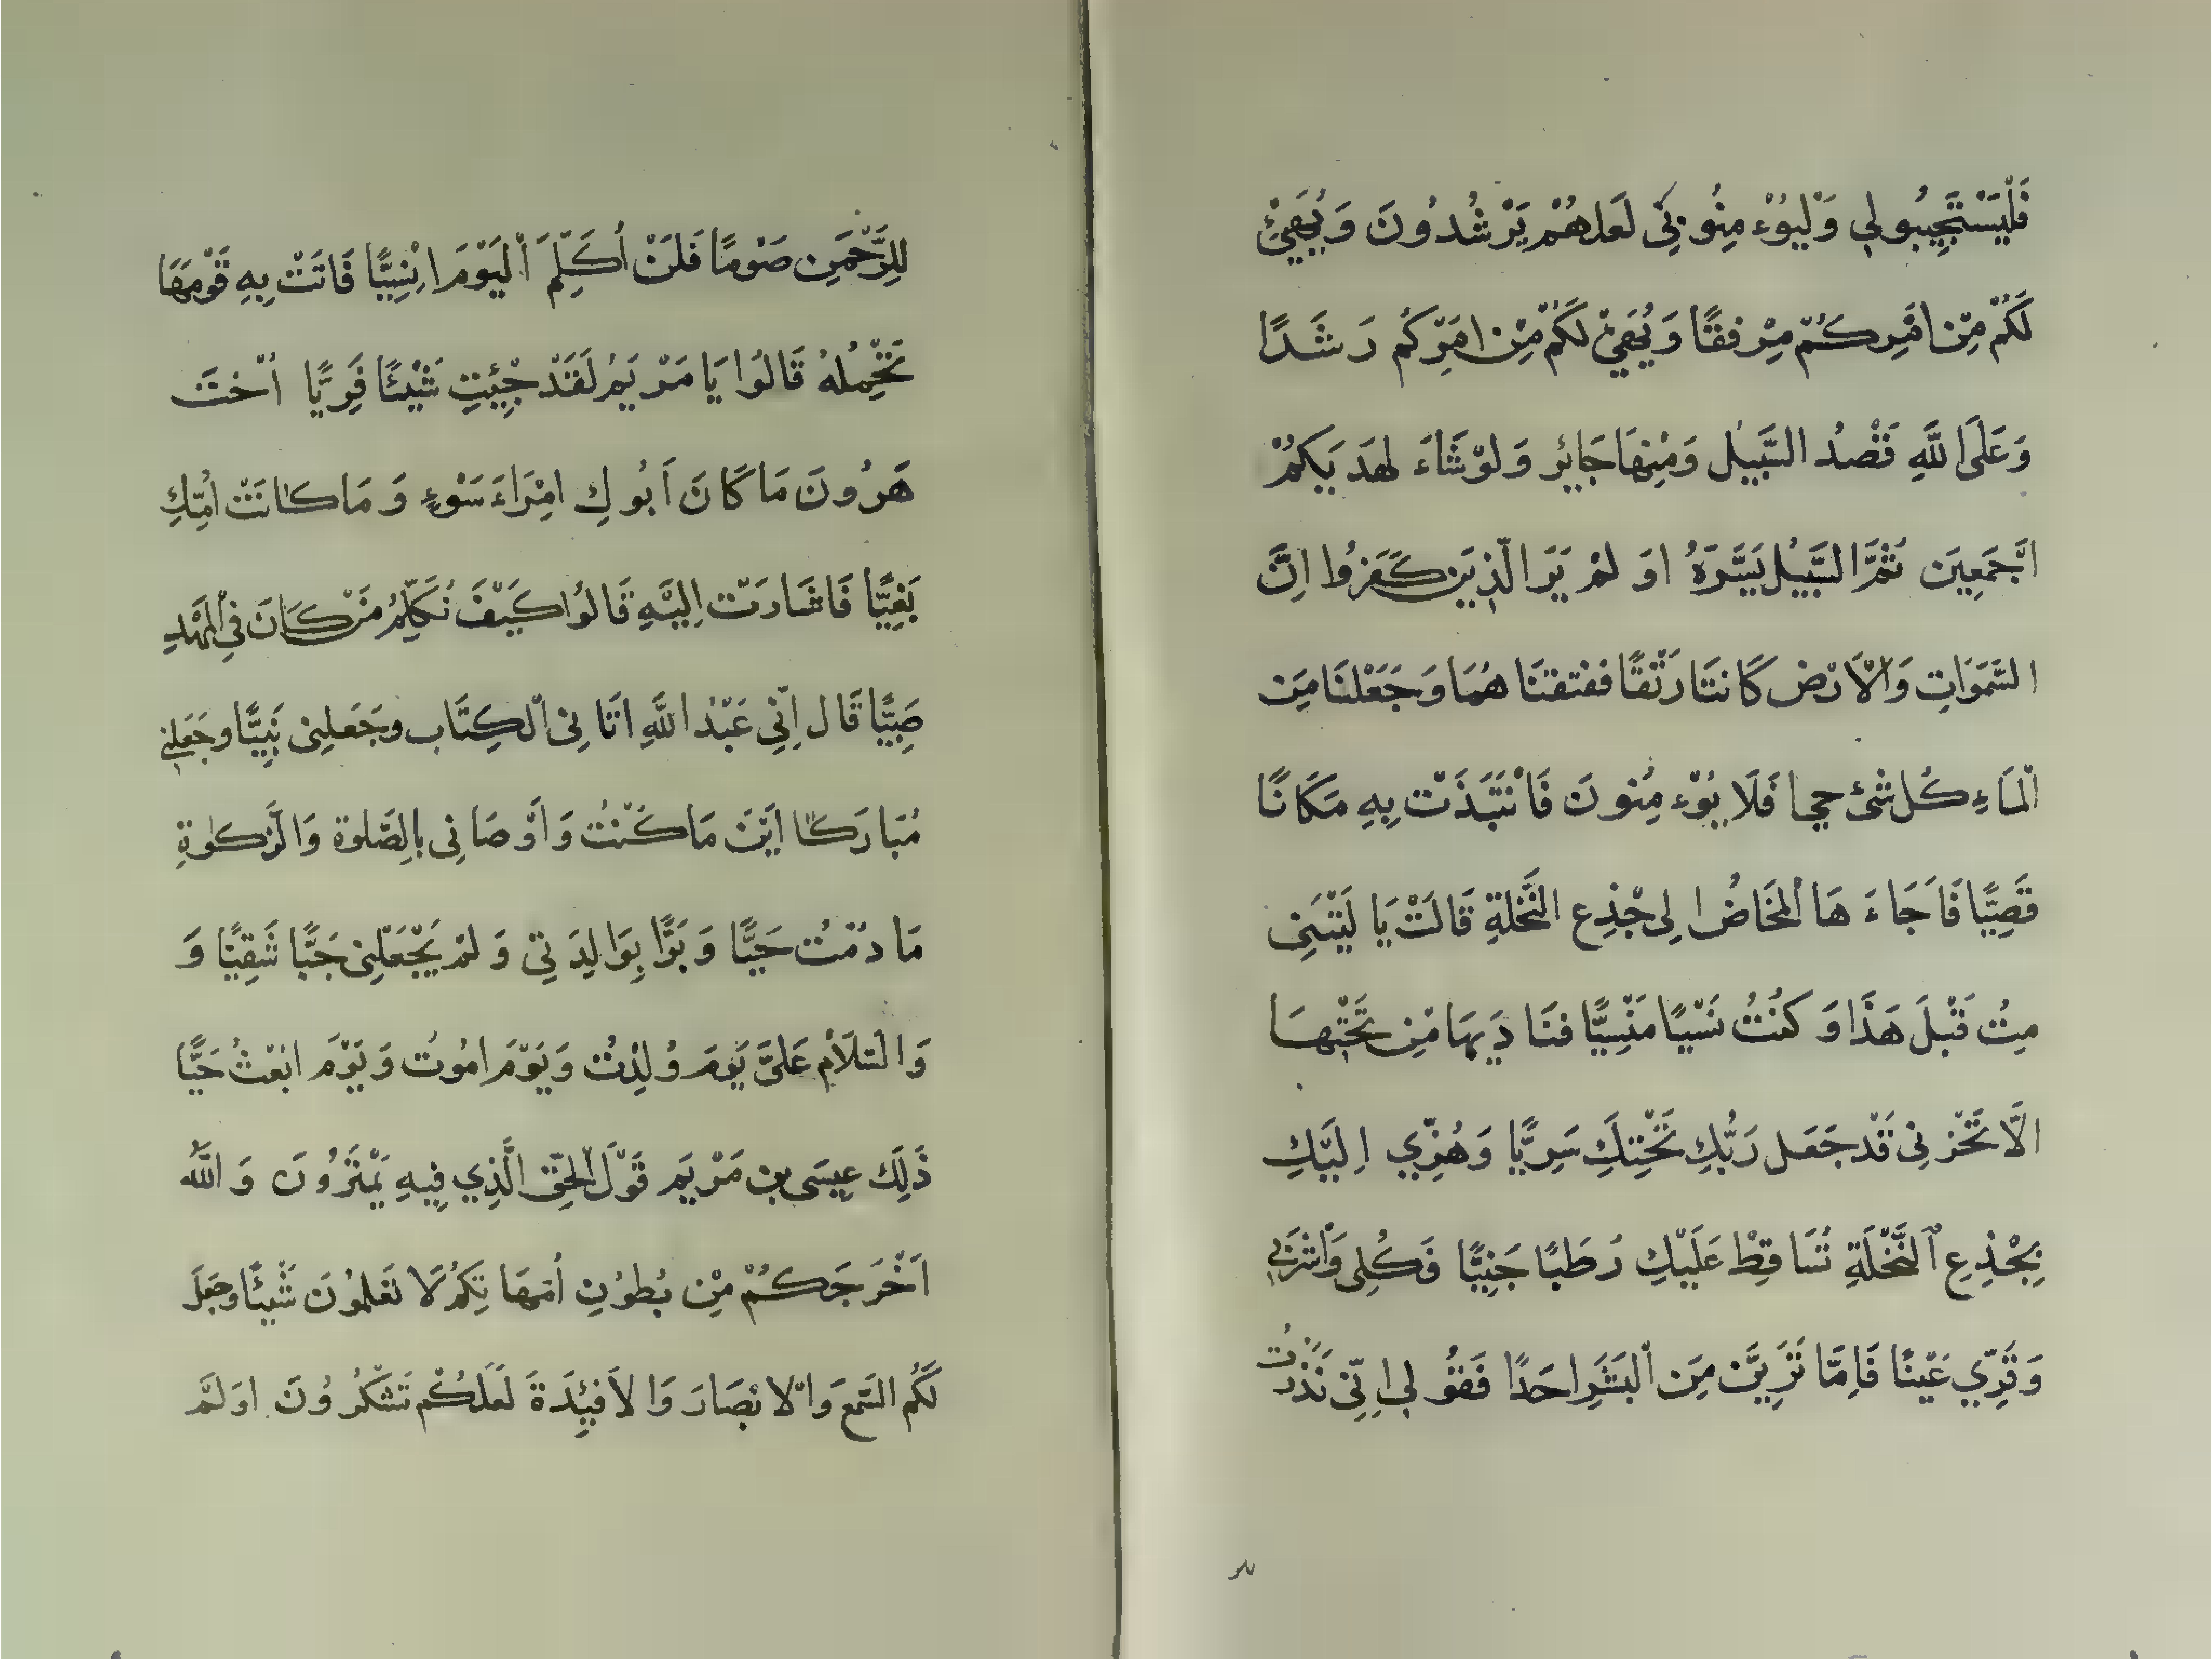 فَلْيَسْتَجِيبُولِي وَلْيُوْءمِنُونِي لَعَلهُمْ يَرْشُدُونَ وَيُهَيِّئْ
لَكُمْ مِنْ امْرِكُمْ مِرْفقًا وَيُهَيئْ لَكُمْ مِنْ امْرِكُم رَشَدًا
وَعَلَى اللَّهِ قَصْدُ السَّبِيْلِ وَمْنِهَا جَايِر وَلوْشَاءَ لهَدَيَكمُ
اجْمَعِينَ ثُمَّ السَّبِيْلَ يَسَّرَهُ اوَ لمْ يَرَ الّذِينَ كَفَرُوا اِنَّ
السَّمَوَاتِ وَالْاَرْضَ كَانتَا رَتْقًا ففتقنَا هُمَا وَجَعَلْنَا مِنَ
الْمَاءِ كُل شْئ حيا فَلَا يُوْءمِنُونَ فَانْتَبَذَتْ بِهِ مَكَانًا
قَصِيًّا فَاَجَاءَ هَا الْمخَاضُ الِى جْذِع النَّخْلةِ قَالَتْ يَا لَيْتَنِى
مِتُ قَبْلَ هَذَا وَكنُتُ نَسْيًا مَنْسِيًّا فنَادَيهَا مْن تَحْتِهَا
الَّا تَحْزنِى قَدْ جَعَل رَبُّكِ تَحْتِكَ سَرِيًّا وَهُزِّي اِلَيْكِ
بِجْذِعِ النَّخْلَةِ تُسَاقِطْ عَلَيْكِ رُطَبًا جَنِيًّا فَكُلِى وَاشْرَبِي
وَقَرِّي عَيْنًا فَاِمَّا تَرَيِنَّ مِنَ الْبَشَرِ احَدًا فَقوُلِي اِنِّى نَذَرْتُ
لِلرَّحْمَنِ صَوْمًا فَلَنْ اُكَلِّمَ الْيَوْمَ اِنْسِيًّا فَاتَتْ بِهِ قَوْمَهَا
تَحْمِلُهُ قَالُوا يَا مَرْيَمُ لَقَدْ جِئْتِ شَيْئًا فَرِيًّا اُخْتَ
هَرُونَ مَا كَانَ اَبُوكِ امْرَاءَ سَوْءٍ وَمَا كانَتْ اُمِّكِ
بَغِيًّا فَاشَارَتْ اِلَيْهِ قَالوُا كَيْفَ نُكَلِّمُ مَنْ كَانَ فِي الْمَهْدِ
صَبِيًّا قَال اِنِّي عَبْدُ اللَّهِ اتَانِىَ الْكِتَاب وجَعَلنِى نَبِيًّا وجَعَلنِي
مُبَارَكًا ايْنَ مَاكُنْتُ وَاَوْصَانِى بالِصَّلوة وَالزَّكوٰةِ
مَا دُمْتُ حَيًّا وَبَرًّا بِوَالِدَتِي وَلمْ يَجْعَلْنِى جَبَّا شَقِيًّا وَ
وَالسَّلاَم عَلىَّ يَوْمَ وُلِدْتُ وَيَوْمَ امُوتُ وَيَوْمَ ابْعْثُ حَيًّا
ذَلِكَ عِيسَى بن مَرْيَم قَوْلَ الْحقّ الَّذِي فِيهِ يَمْتَرُونَ وَاللَّهُ
اَخْرَجَكُمْ مِنْ بُطوُنِ اُمّهَا تِكمُ لَا تَعْلَموُنَ شَيئًا وجَعَلَ
لَكُم السَّمعَ وَالابْصَارَ وَالاَفْيِدَةَ لَعَلكُم تَشْكُرُونَ اوَلمَ